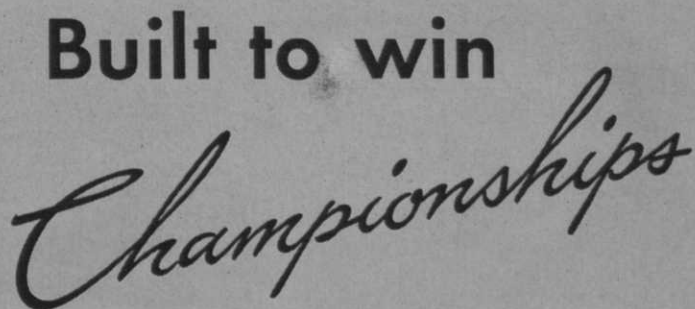 Built to win
Championships